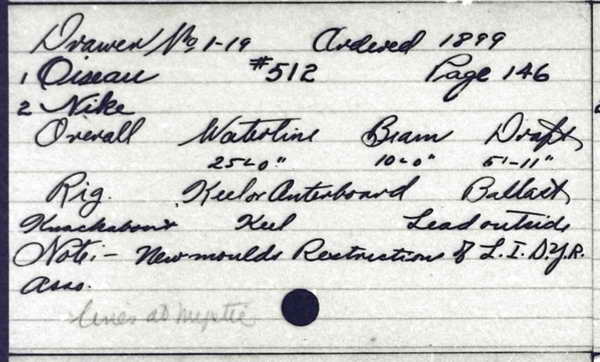 Drawer No 1-19 Ordered 1899
1 Oiseau #512 Page 146
2 Nike
Overall Waterline Beam Draft
25'-0" 10'-0" 5'-11"
Rig. Keel or Centerboard Ballast
Knockabout Keel Lead outside
Note:- New moulds Restrictions of L. I. D.Y.R.
Asso.
lines at Mystic